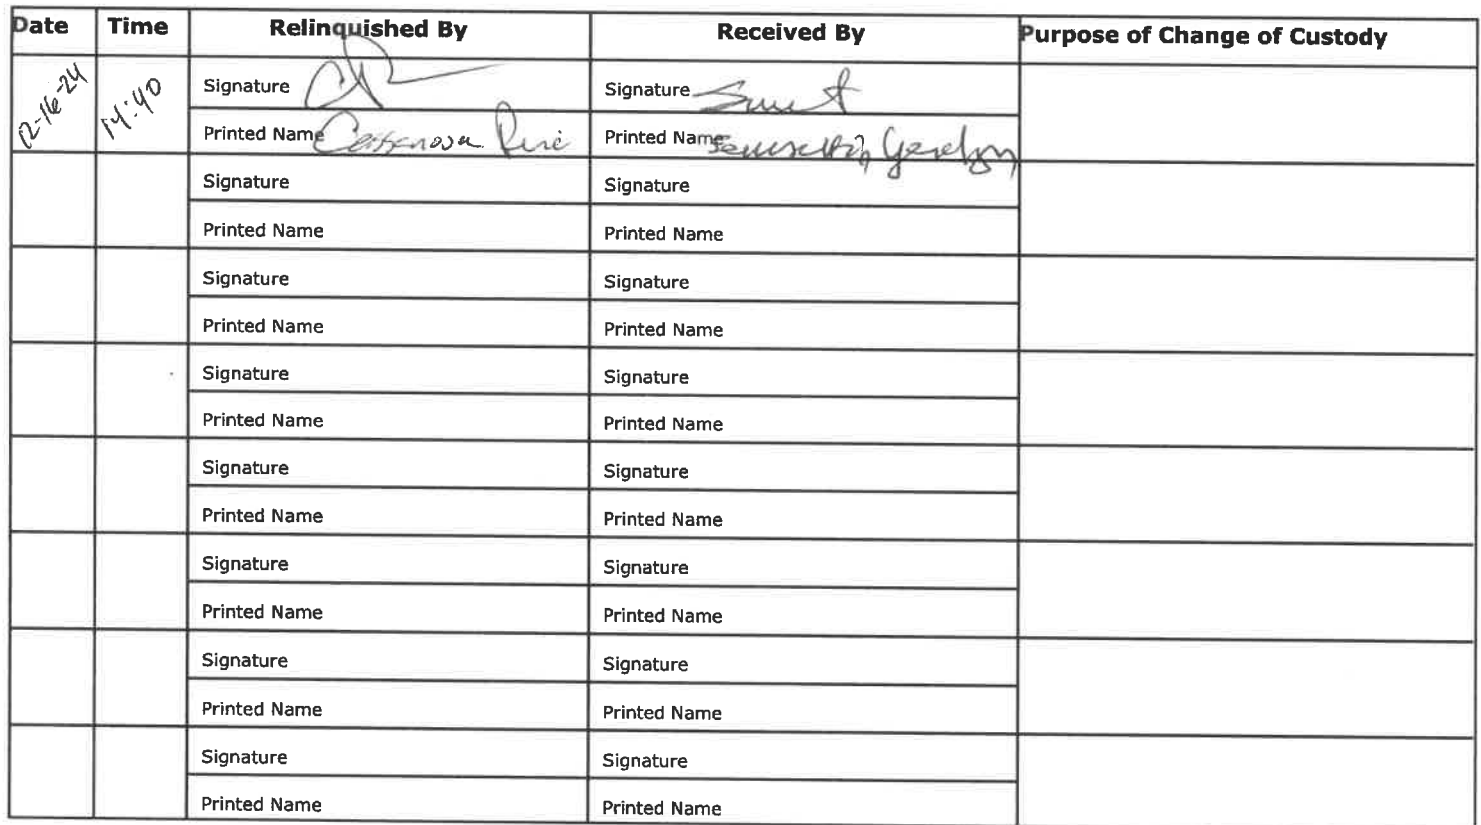 Date Time Relinquished By Received By Purpose of Change of Custody
12-16-24 14:40 Signature Signature
Printed Name Printed Name
Signature Signature
Printed Name Printed Name
Signature Signature
Printed Name Printed Name
Signature Signature
Printed Name Printed Name
Signature Signature
Printed Name Printed Name
Signature Signature
Printed Name Printed Name
Signature Signature
Printed Name Printed Name
Signature Signature
Printed Name Printed Name